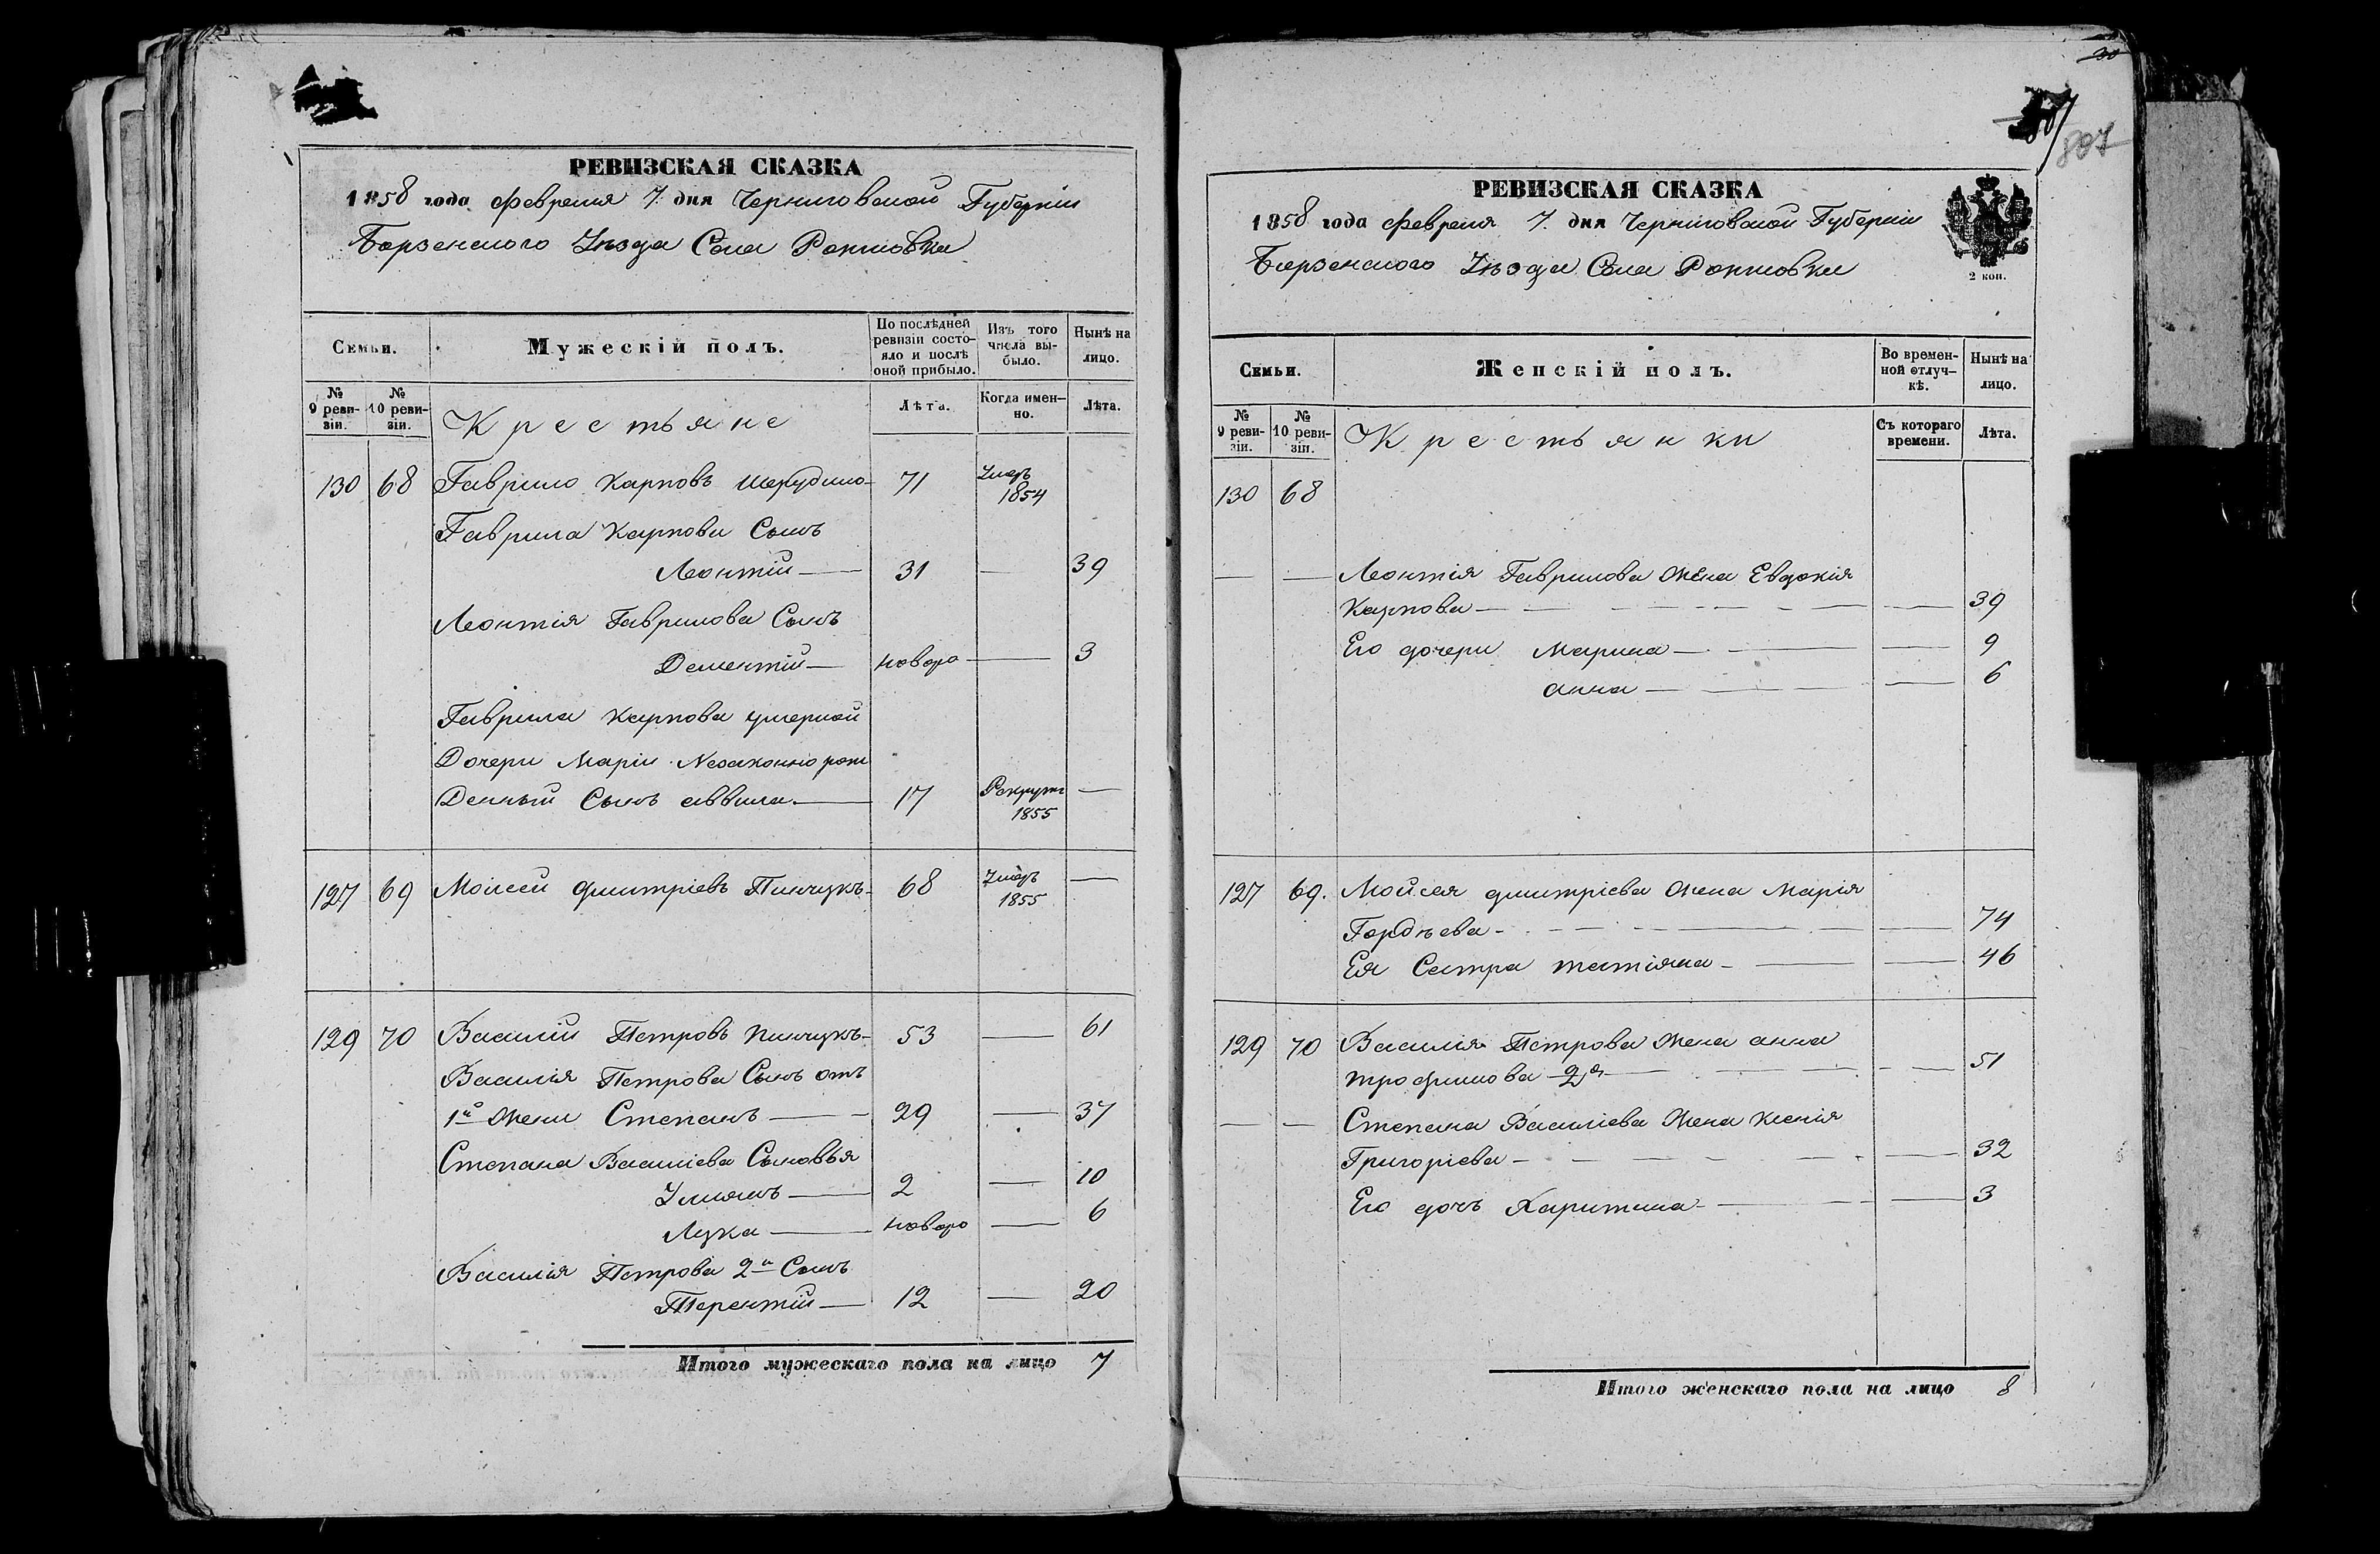 РЕВИЗСКАЯ СКАЗКА
1858 года февраля 7. дня Черниговской Губерніи
Борзенского Уѣзда Села
Семьи.
Мужескій полъ.
По послѣдней ревизіи состояло и послѣ оной прибыло.
Изъ того числа выбыло.
Нынѣ на лицо.
№ 9 ревизіи.
№ 10 ревизіи.
Крестьяне
Лѣта.
Когда именно.
Лѣта.
130 68 Гаврило Карповъ 71 Умеръ 1854
Гаврила Карпова Сынъ
Леонтій 31 — 39
Леонтія Гаврилова Сынъ
Дементій новоро — 3
Гаврила Карпова умершой
Дочери Маріи Незаконнорож
Денный Сынъ 17 Рекрутъ 1855 —
127 69 Моисей Дмитріевъ Пинчукъ 68 Умеръ 1855 —
129 70 Василій Петровъ Пинчукъ 53 — 61
Василія Петрова Сынъ отъ
1й жены Степанъ 29 — 37
Степана Василіева Сыновья
Улиянъ 2 — 10
Лука новоро — 6
Василія Петрова 2й Сынъ
Терентій 12 — 20
Итого мужескаго пола на лицо 7
807
РЕВИЗСКАЯ СКАЗКА
1858 года февраля 7. дня Черниговской Губерніи
Борзенского Уѣзда Села
2 коп.
Семьи.
Женскій полъ.
Во временной отлучкѣ.
Нынѣ на лицо.
№ 9 ревизіи.
№ 10 ревизіи.
Крестьянки
Съ котораго времени.
Лѣта.
130 68
— — Леонтія Гаврилова жена Евдокія
Карпова — — 39
Его дочери Марина — — 9
анна — — 6
127 69. Мойсея дмитріева жена Марія
Гордѣева — — 74
Ея Сестра татіяна — — 46
129 70 Василія Петрова жена анна
трофимова 2я — — 51
— — Степана Василіева жена ксенія
Григоріева — — 32
Его дочь Харитина — — 3
Итого женскаго пола на лицо 8